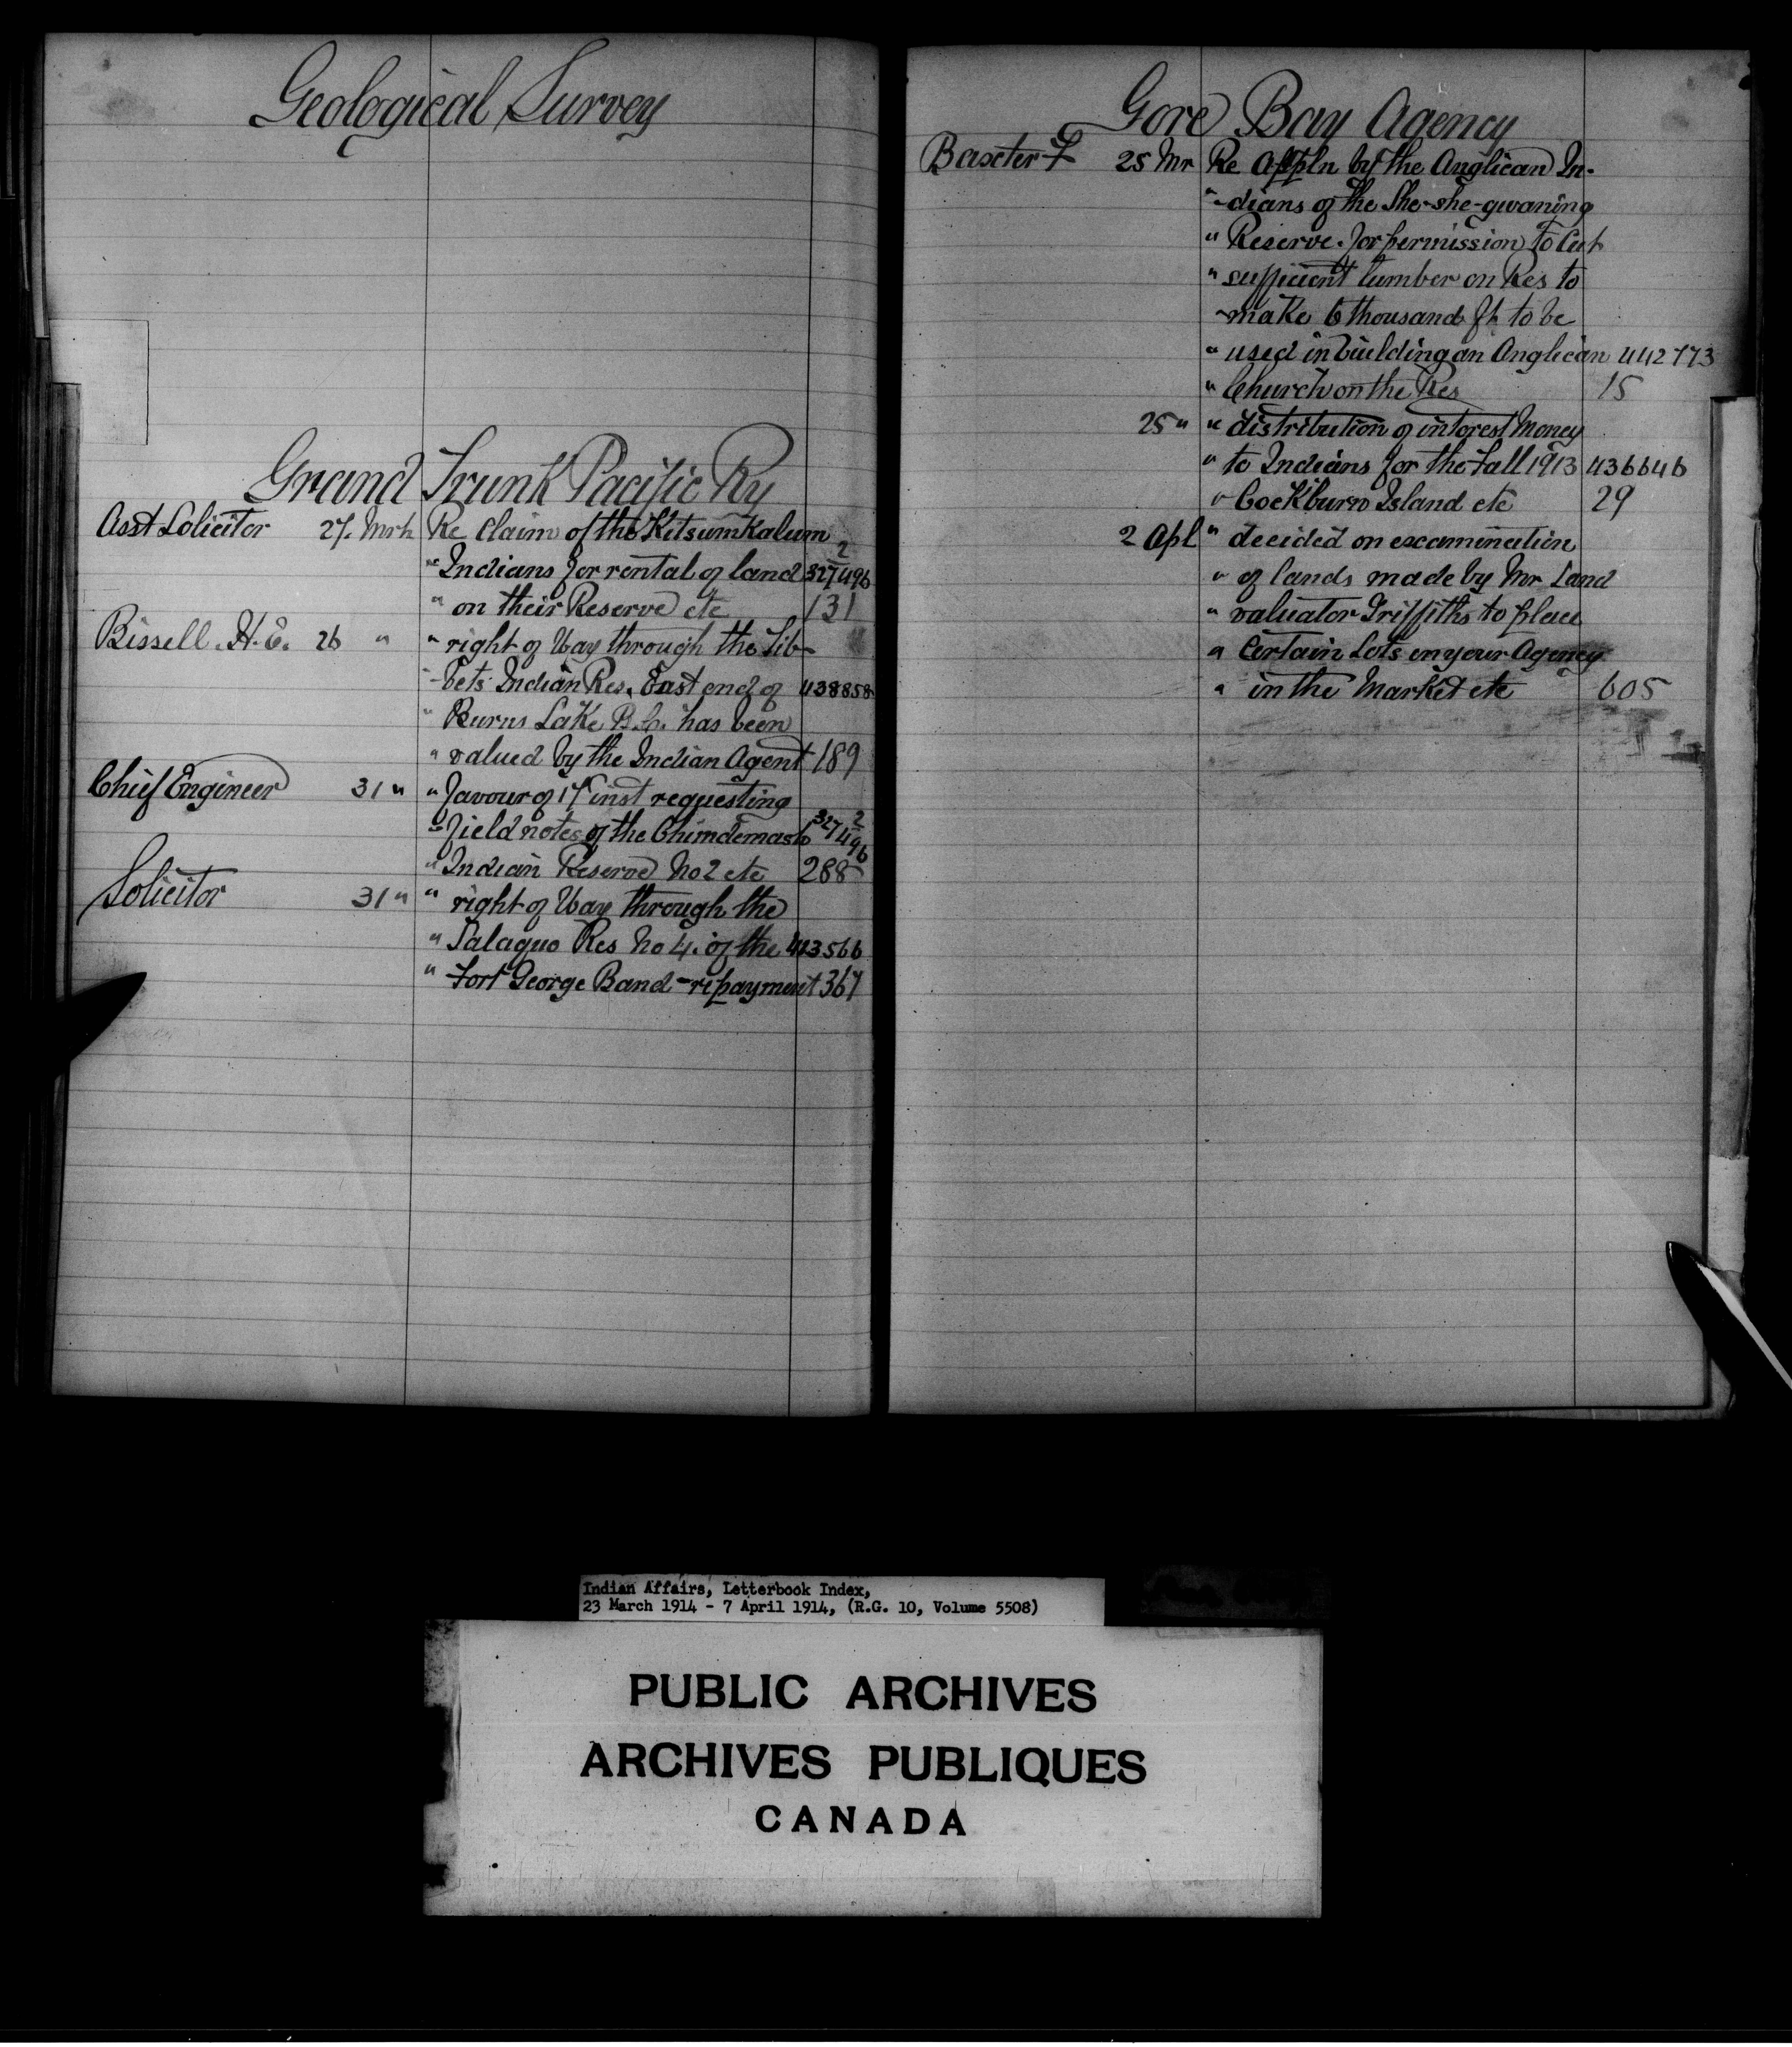 Geological Survey
Grand Trunk Pacific Ry
Asst Solicitor 27. Mrh Re Claim of the Kitsumkalum
" Indians for rental of land 327496 2
" on their Reserve etc 131
Bissell. H.E. 26 " " right of Way through the Sib-
" -bets Indian Res. East end of 438858
" Burns Lake B.C. has been
" valued by the Indian Agent 189
Chief Engineer 31 " " favour of 17 inst requesting
" field notes of the Chimdemash 327496 2
" Indian Reserve No 2 etc 288
Solicitor 31 " " right of Way through the
" Salaquo Res No 4. of the 443566
" Fort George Band - repayment 367
Gore Bay Agency
Baxter 25 Mr Re Appln by the Anglican In-
" -dians of the She-she-gwaning
" Reserve. for permission to Cut
" sufficient lumber on Res to
" make 6 thousand ft to be
" used in building an Anglican 442773
" Church on the Res 15
25 " " distribution of interest Money
" to Indians for the Fall 1913 436646
" Cockburn Island etc 29
2 Apl " decided on examination
" of lands made by Mr Land
" valuator Griffiths to place
" Certain Lots in your Agency
" in the Market etc 605
Indian Affairs, Letterbook Index,
23 March 1914 - 7 April 1914, (R.G. 10, Volume 5508)
PUBLIC ARCHIVES
ARCHIVES PUBLIQUES
CANADA